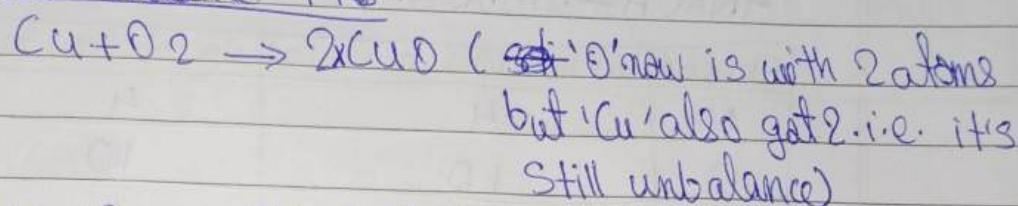 Cu+O2 → 2xCuO ( 'O' now is with 2 atoms
but 'Cu' also got 2. i.e. it's
Still unbalance)